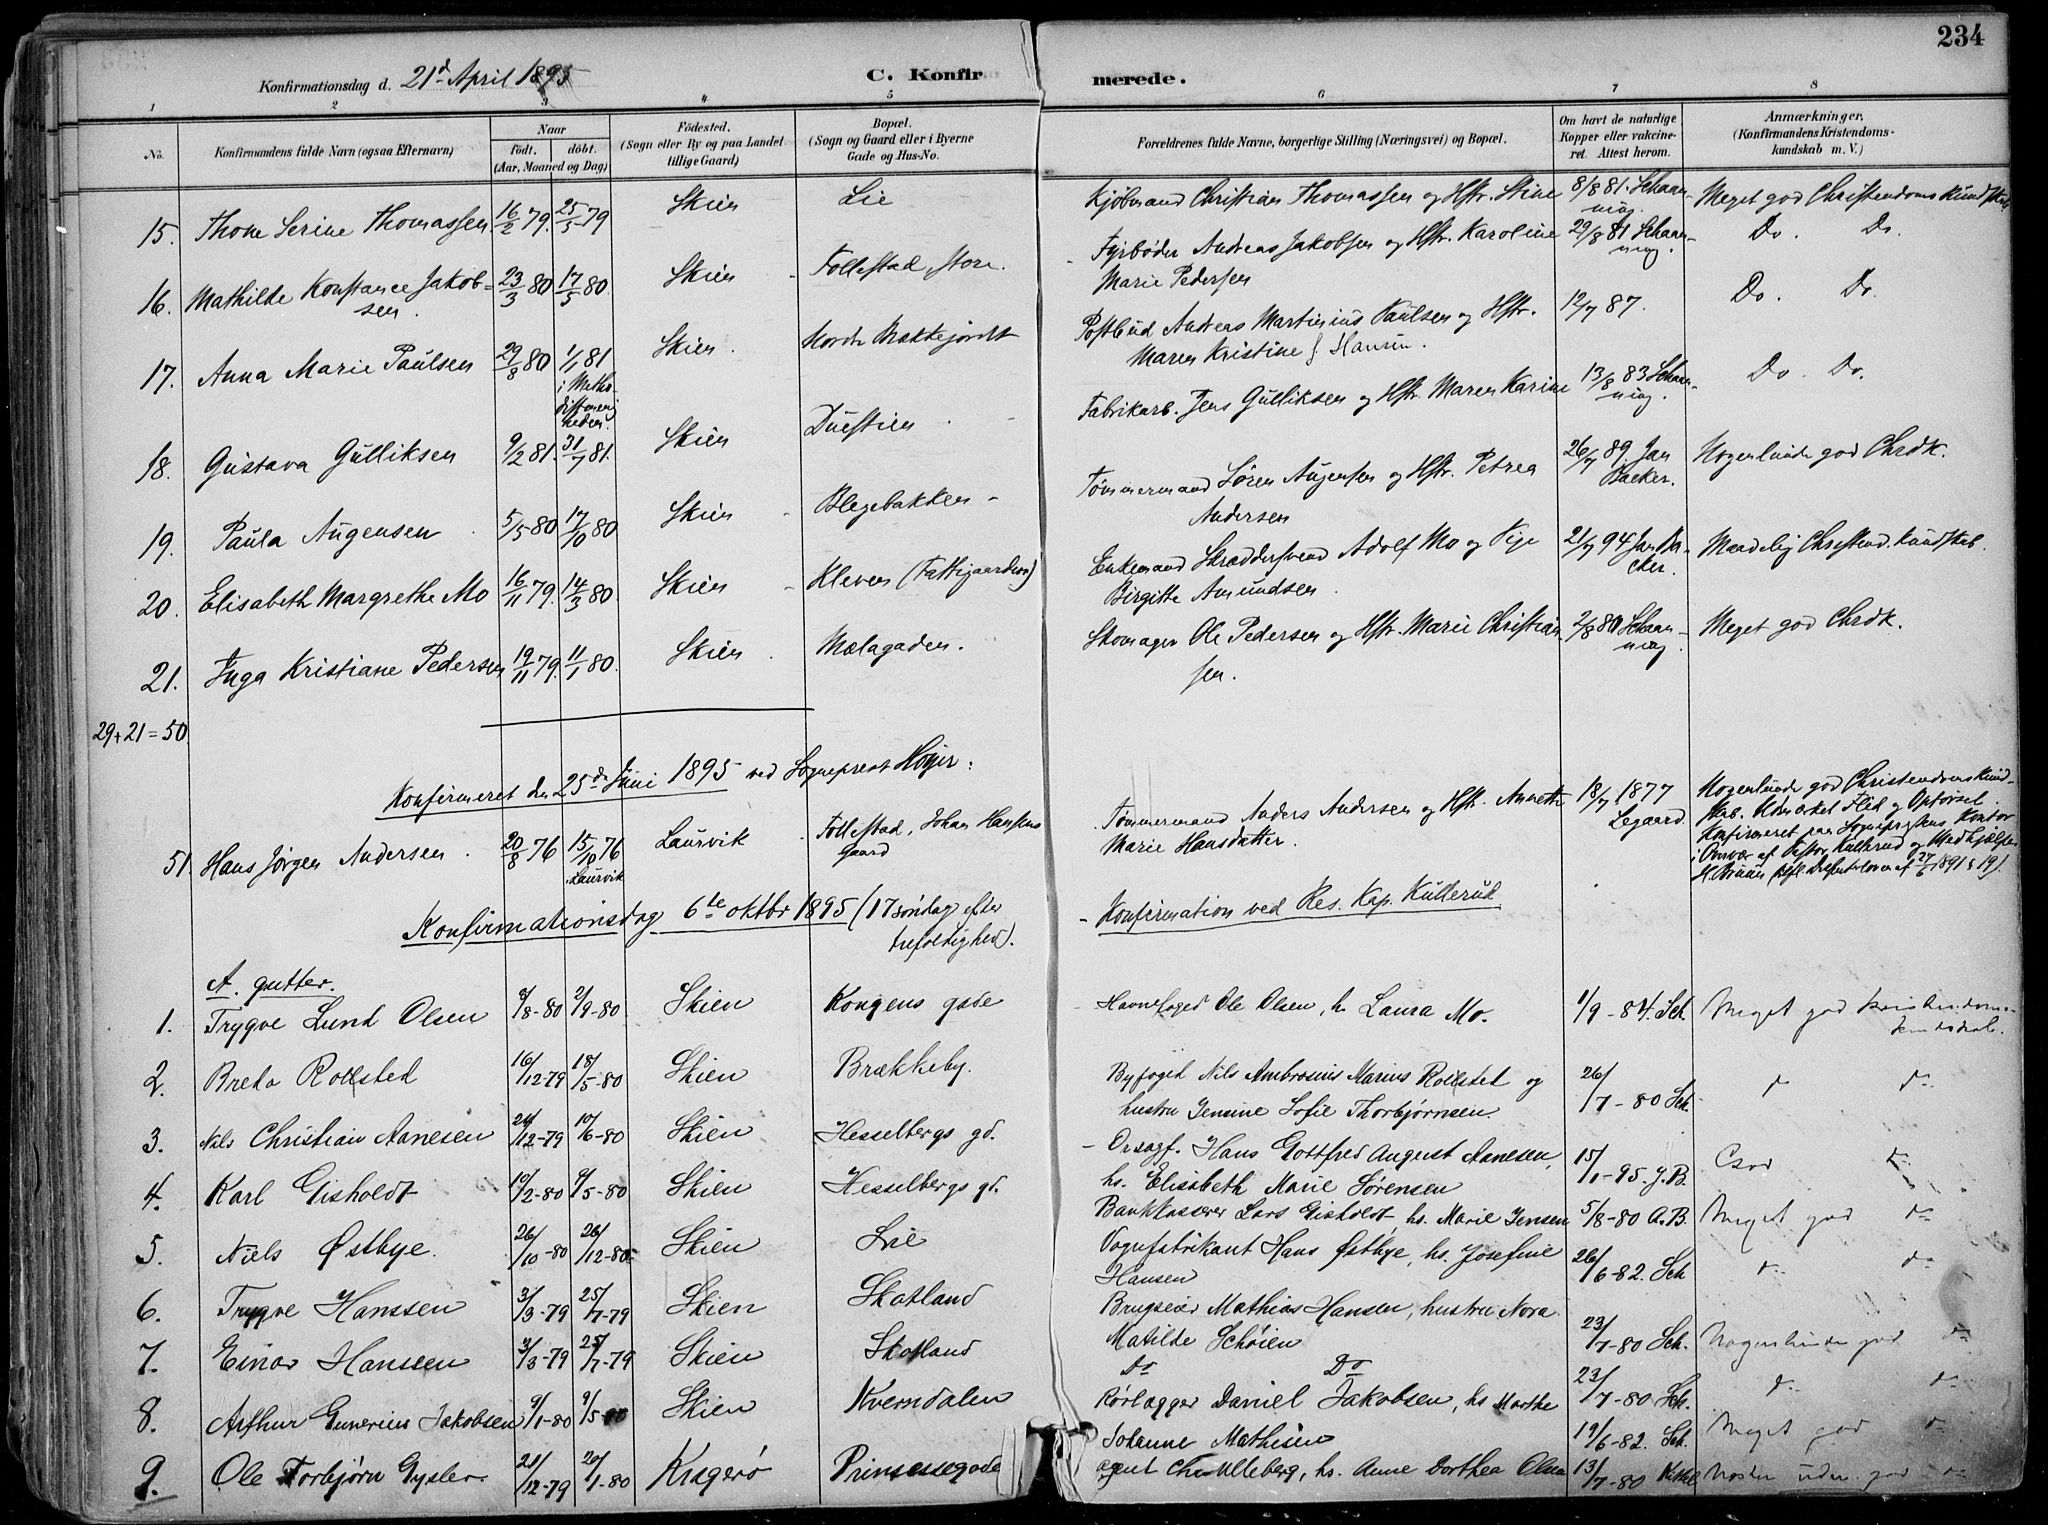 234
Konfirmationsdag d. 21de April 1895
C. Konfirmerede.
1 2 3 4 5 6 7 8
No.
Konfirmandens fulde Navn (ogsaa Efternavn)
Naar
födt. döbt.
(Aar, Maaned og Dag)
Födested.
(Sogn eller By og paa Landet
tillige Gaard)
Bopæl.
(Sogn og Gaard eller i Byerne
Gade og Hus-No.
Forældrenes fulde Navne, borgerlige Stilling (Næringsvei) og Bopæl.
Om havt de naturlige
Kopper eller vakcine-
ret. Attest herom.
Anmærkninger.
(Konfirmandens Kristendoms-
kundskab m. V.)
15. Thone Serine Thomassen 16/2 79. 25/5 79 Skien Lie Kjøbmand Christian Thomassen og Hstr. Stine 8/8 81. Schaan-
ning. Meget god Christendomskundskab
16. Mathilde Konstance Jakob-
sen. 23/3 80 17/5 80. Skien Follestad, store. Fyrbøder Andreas Jakobsen og Hstr. Karoline
Marie Pedersen 29/8 81 Schaan-
ning. Do. Do.
17. Anna Marie Paulsen 29/8 80 1/1 81
i Metho-
distmenig-
heden. Skien. Nordre Brekkejordet Postbud Andreas Martinius Paulsen og Hstr.
Maren Kristine f. Hansen. 12/7 87. Do. Do.
18. Gustava Gulliksen 9/2 81. 31/7 81. Skien Duestien Fabrikarb. Jens Gulliksen og Hstr. Maren Karine 13/8 83 Schaan-
ning. Do. Do.
19. Paula Augensen 5/5 80 17/10 80 Skien Blegebakken Tømmermand Søren Augensen og Hstr. Petrea
Andersen 26/7 89. Jan
Backer. Nogenlunde god Chrdk.
20. Elisabeth Margrethe Mo 16/11 79. 14/3 80. Skien Kleven (Fattigaarden) Enkemand Skræddersvend Adolf Mo og Pige
Birgitte Amundsen. 21/7 94 Jan Ba-
cker. Maadelig Christend. kundskab.
21. Inga Kristiane Pedersen 19/11 79. 11/1 80. Skien Mælagaden. Skomager Ole Pedersen og Hstr. Marie Christian-
sen. 2/8 80 Schaan-
ning Meget god Chrdk.
29+21=50
Konfirmeret den 25de Juni 1895 ved Sogneprest Høyer.
51. Hans Jørgen Andersen. 20/8 76 15/10 76
Laurvik Laurvik Follestad, Johan Hansens
Gaard Tømmermand Anders Andersen og Hstr. Annette
Marie Hansdatter. 18/7 1877
Legaard. Nogenlunde god Christendomskund-
skab. Udmærket Flid og Opførsel.
Konfirmeret paa Sogneprestens Kontor
i Overvær af Pastor Kullerud og Medhjælper
Konfirmationsdag 6te oktbr 1895 (17 søndag efter
trefoldighed).
- Konfirmation ved Res. Kap. Kullerud
A. gutter.
1. Trygve Lund Olsen 8/8-80 2/9-80 Skien Kongens gade Havnefoged Ole Olsen, h. Laura Mo. 1/9-84. Sch. Meget god kristendoms-
kundskab.
2. Breda Rollsted 16/12-79 18/5-80 Skien Brækkeby. Byfoged Nils Ambrosius Marius Rollstet og
hustru Jensine Sofie Thorbjørnsen. 26/7-80 Sch. d do
3. Nils Christian Aanesen 24/12-79 10/6-80 Skien Hesselbergs gd. - Orsagf. Hans Gottfred August Aanesen,
hs. Elisabeth Marie Sørensen 15/1-95. J.B. God
4. Karl Gisholdt 19/2-80 9/5-80 Skien Hesselbergs gd. Bankkasserer Lars Gisholdt, hs. Marie Jensen 5/8-80 A.B. Meget god do
5. Niels Østbye. 26/10-80 26/12-80 Skien Lie Vognfabrikant Hans Østbye, hs. Josefine
Hansen 26/6-82. Sch do do
6. Trygve Hanssen 3/3-79 25/7-79 Skien Skotland Brugseier Mathias Hansen, hustru Nora
Matilde Schøien 23/7-80 Sch. Nogenlunde god do
7. Einar Hansen 3/3-79 25/7-79 Skien Skotland Do Do 23/7-80 Sch. do do
8. Arthur Gunerius Jakobsen 9/1-80 9/5-80 Skien Kverndalen Rørlægger Daniel Jakobsen, hs Marthe
Johanne Mathisen 19/6-82. Sch. Meget god do
9. Ole Torbjørn Gysler 21/12-79 20/1-80 Kragerø Prinsessegade agent Chr Ulleberg, hs. Anne Dorthea Olsen 13/7-80 god do